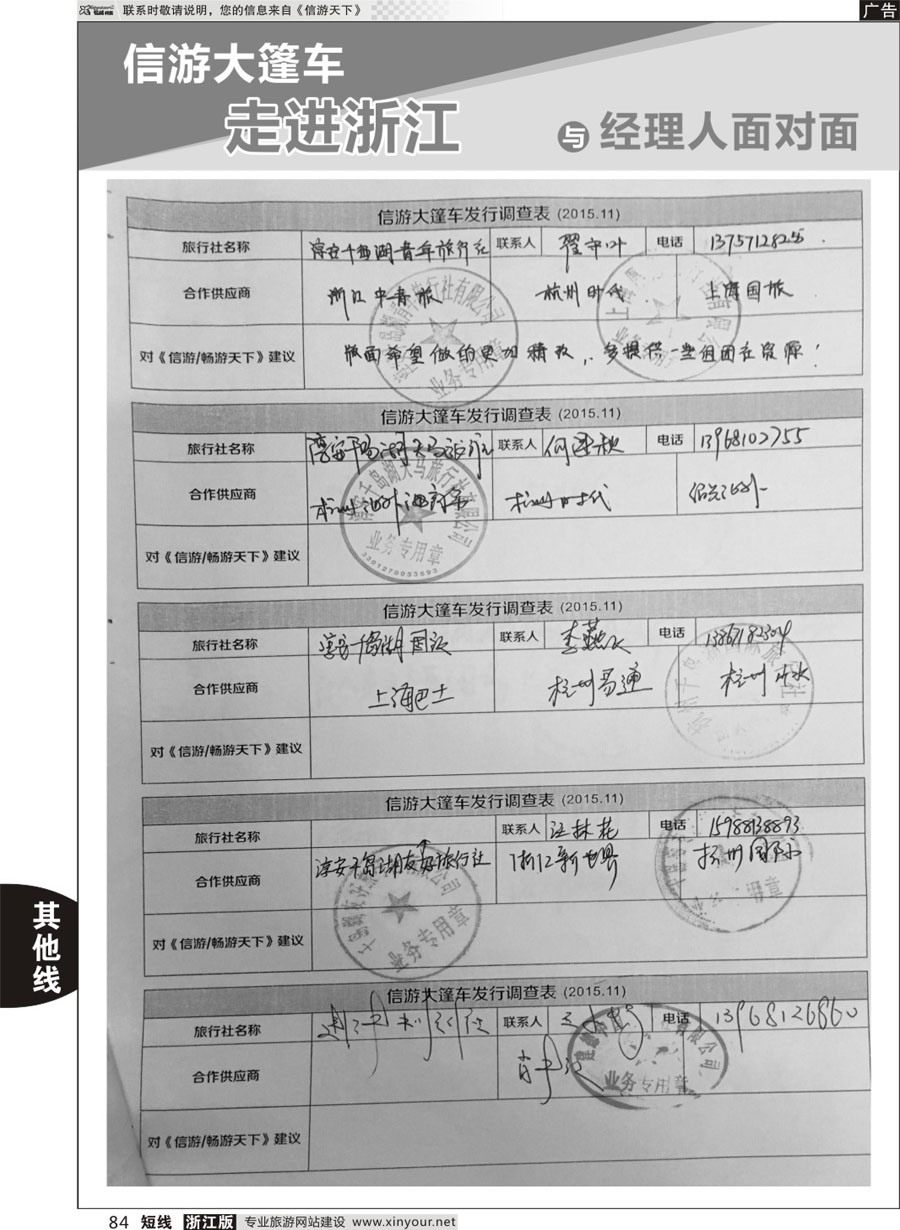 联系时敬请说明，您的信息来自《信游天下》
广告
信游大篷车
走进浙江
与 经理人面对面
信游大篷车发行调查表 (2015.11)
旅行社名称 淳安千岛湖青年旅行社 联系人 电话 1375712825
合作供应商 浙江中青旅 杭州时代 上海国旅
对《信游/畅游天下》建议 版面希望做的更加精致，多提供一些组团社资源！
信游大篷车发行调查表 (2015.11)
旅行社名称 淳安千岛湖天马旅行社 联系人 电话 13968102755
合作供应商 杭州海外 杭州时代 绍兴海外
对《信游/畅游天下》建议
千岛湖天马旅行社有限公司
业务专用章
3301270033593
信游大篷车发行调查表 (2015.11)
旅行社名称 淳安千岛湖国旅 联系人 电话 13867182304
合作供应商 上海巴士 杭州易通 杭州
对《信游/畅游天下》建议
信游大篷车发行调查表 (2015.11)
旅行社名称 联系人 汪林花 电话 15988138893
合作供应商 淳安千岛湖友好旅行社 浙江新世界 杭州
对《信游/畅游天下》建议
业务专用章
信游大篷车发行调查表 (2015.11)
旅行社名称 联系人 电话 13968126860
合作供应商
业务专用章
对《信游/畅游天下》建议
其他线
84 短线 浙江版 专业旅游网站建设 www.xinyour.net